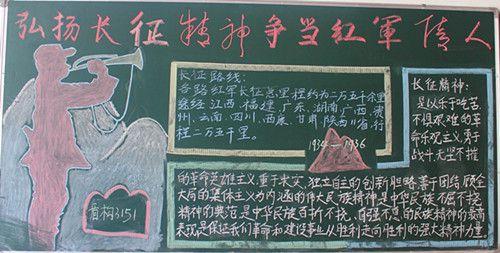 弘扬长征精神争当红軍傳人
长征路线:
各路红军长征总里程约为二万五千余里
途经江西、福建、广东、湖南、广西、贵
州、云南、四川、西康、甘肃、陕西11省,行
程二万五千里。
1934—1936
长征精神:
是以乐于吃苦,
不惧艰难的革
命乐观主义勇于
战斗无坚不摧
的革命英雄主义重于求实、独立自主的创新胆略善于团结、顾全
大局的集体主义为内涵的伟大民族精神是中华民族不屈不挠
精神的典范是中华民族百折不挠,自强不息的民族精神的最高
表现是保证我们革命和建设事业从胜利走向胜利的强大精神力量
3151